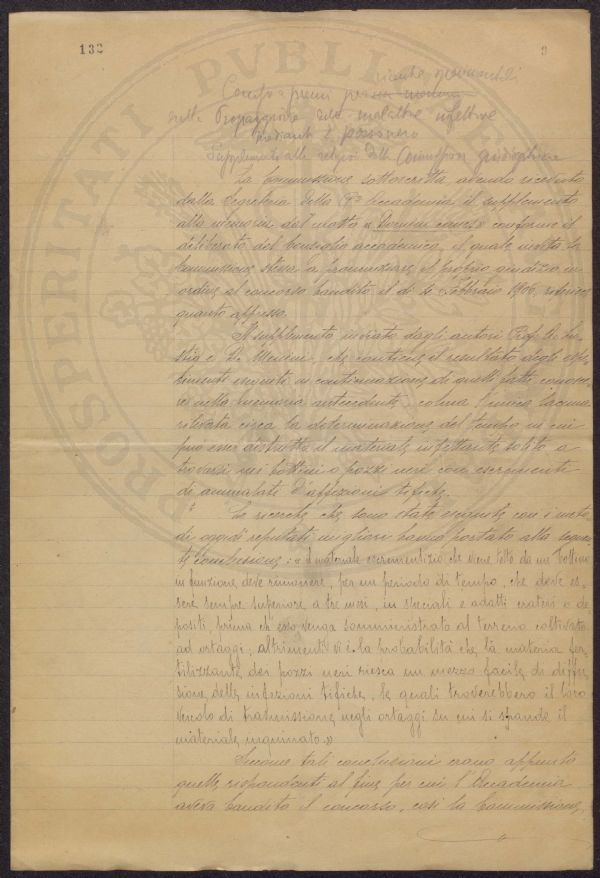 132
9
ricerche sperimentali
Concorso a premi per una memoria
sulla Propagazione delle malattie infettive
mediante il pozzo nero
Supplemento alla relazione della Commissione giudicatrice
La Commissione sottoscritta avendo ricevuto
dalla Segreteria della R.a Accademia il supplemento
alla memoria dal motto « Homini canes » conforme il
deliberato del Consiglio accademico, il quale invita la
Commissione stessa a pronunziare il proprio giudizio in
ordine al concorso bandito il dì 4 Febbraio 1906, riferisce
quanto appresso.
Il supplemento inviato dagli autori Prof.
e G. che contiene il resultato degli espe-
rimenti eseguiti a continuazione di quelli fatti conosce-
re nella memoria antecedente, colma l'unica lacuna
rilevata circa la determinazione del tempo in cui
può esser distrutto il materiale infettante solito a
trovarsi nei bottini o pozzi neri con escrementi
di ammalati d'affezioni tifiche.
Le ricerche che sono state eseguite con i meto-
di oggidì reputati migliori hanno portato alla seguen-
te conclusione: « il materiale escrementizio che viene tolto da un bottino
in funzione deve rimanere, per un periodo di tempo, che deve es-
sere sempre superiore a tre mesi, in speciali e adatti crateri o de-
positi, prima che esso venga somministrato al terreno coltivato
ad ortaggi; altrimenti vi è la probabilità che la materia fer-
tilizzante dei pozzi neri riesca un mezzo facile di diffu-
sione delle infezioni tifiche, le quali troverebbero il loro
veicolo di trasmissione negli ortaggi su cui si spande il
materiale inquinato. »
Siccome tali conclusioni erano appunto
quelle rispondenti al fine per cui l'Accademia
aveva bandito il concorso, così la Commissione,
PROSPERITATI PVBLICAE